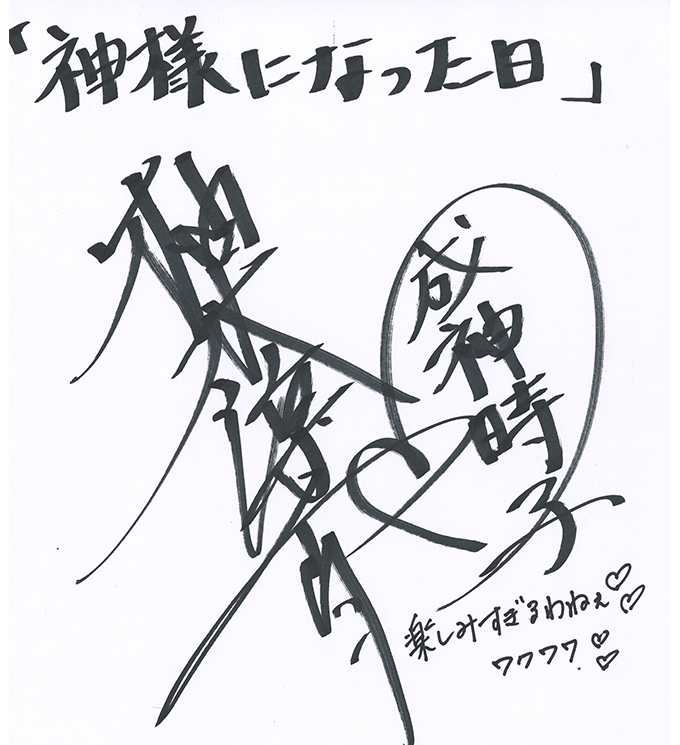 「神様になった日」
成神時子
楽しみすぎるわねぇ♡♡
ワクワク♡♡